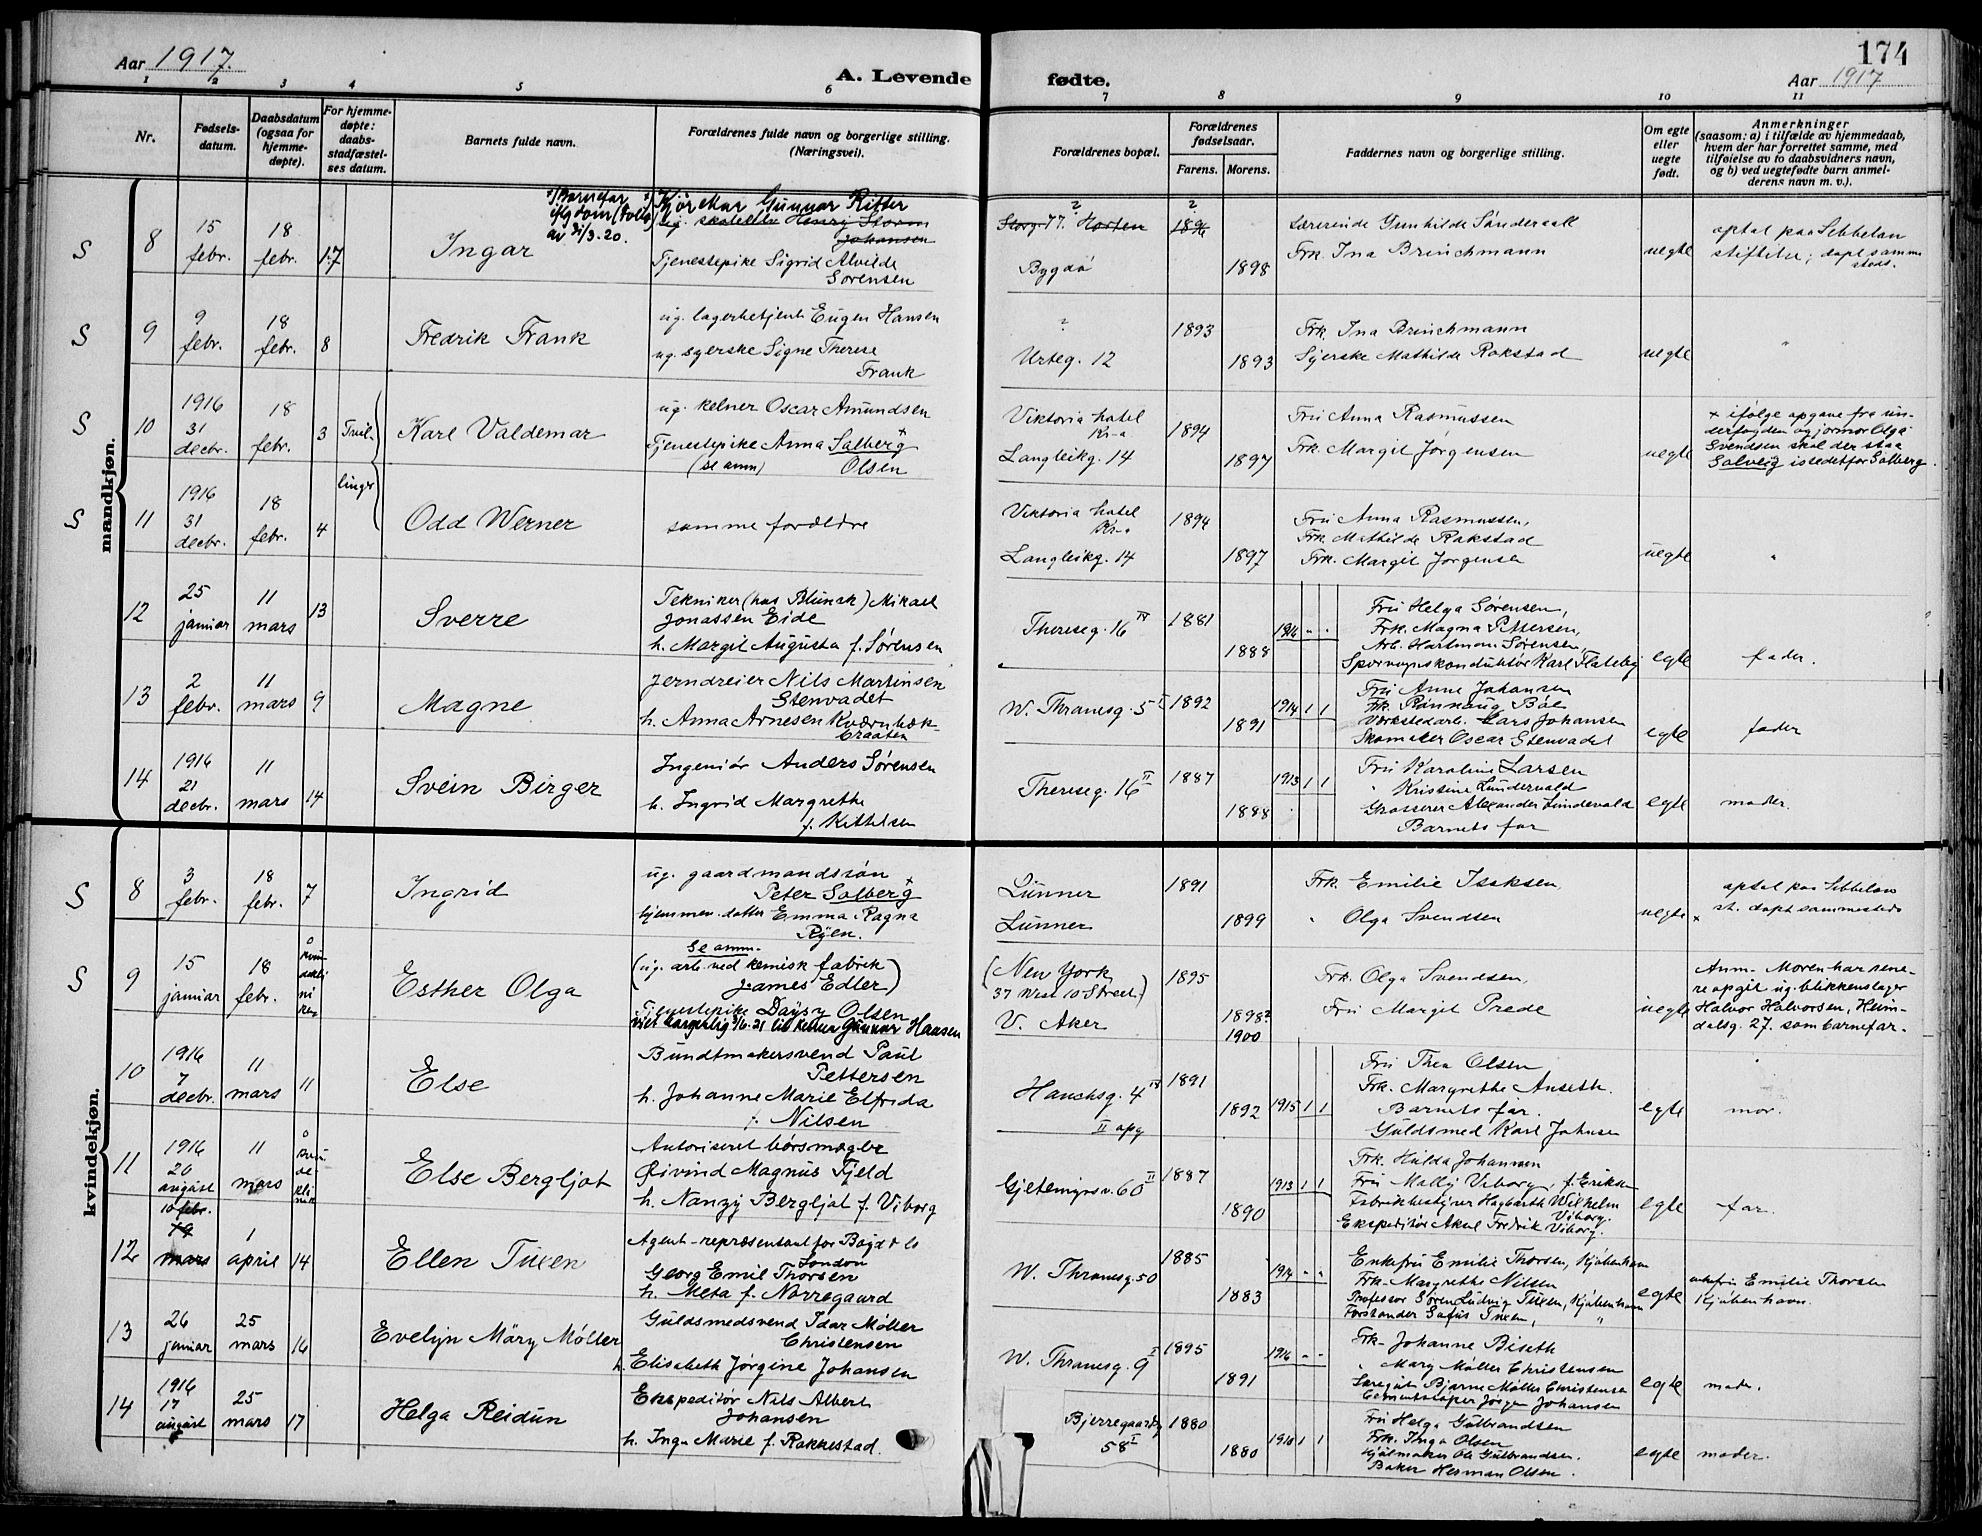 Aar 1917.
A. Levende fødte.
174
Aar 1917
1 2 3 4 5 6 7 8 9 10 11
Nr.
Fødsels-
datum.
Daabsdatum
(ogsaa for
hjemme-
døpte).
For hjemme-
døpte:
daabs-
stadfæstel-
ses datum.
Barnets fulde navn.
Forældrenes fulde navn og borgerlige stilling.
(Næringsvei).
Forældrenes bopæl.
Forældrenes
fødselsaar.
Farens. Morens.
Faddernes navn og borgerlige stilling.
Om egte
eller
uegte
født.
Anmerkninger
(saasom: a) i tilfælde av hjemmedaab,
hvem der har forrettet samme, med
tilføielse av to daabsvidners navn,
og b) ved uegtefødte barn anmel-
derens navn m. v.).
mandkjøn.
S 8 15 febr. 18 febr. 17
Ingar
Barnefar
av 31/3-20.
Gunnar Ritter
ug. Henry Storm
Johansen
Tjenestepike Sigrid Alvilde
Sørensen
Storg. 77 Horten
Bygdø
1896
1898
Lærerinde Gunhilde Sønderaal
Frk. Ina Brinchmann
uegte
optat paa Sebbelow
stiftelse; døpt samme
steds.
S 9 9 febr. 18 febr. 8
Fredrik Frank
ug. lagerbetjent Eugen Hansen
ug. syerske Signe Therese
Frank
?
Urteg. 12
1893
1893
Frk. Ina Brinchmann
Syerske Mathilde Rakstad
uegte
"
S 10 1916 31 decbr. 18 febr. 3 Tvil-
Karl Valdemar
ug. kelner Oscar Amundsen
Tjenestepike Anna Salberg +
(se anm) Olsen
Viktoria hotel
Kr-a
Langleikg. 14
1894
1897
Fru Anna Rasmussen
Frk. Margit Jørgensen
uegte
+ ifølge opgave fra un-
derfogden og jormor Olga
Svendsen skal der staa
Solveig istedetfor Salberg.
S 11 1916 31 decbr. 18 febr. 4 linger
Odd Werner
samme forældre
Viktoria hotel
Kr-a
Langleikg. 14
1894
1897
Fru Anna Rasmussen,
Frk. Mathilde Rakstad
Frk. Margit Jørgensen
uegte
"
12 25 januar 11 mars 13
Sverre
Tekniker (hos Blunck) Mikael
Jonassen Eide
h. Margit Augusta f. Sørensen
Thereseg. 16 IV
1881
1888
1914 " "
Fru Helga Sørensen,
Frk. Magna Pettersen,
Arb. Hartman Sørensen,
Sporvognskonduktør Karl Flateby
egte
fader.
13 2 febr. 11 mars 9
Magne
Jerndreier Nils Martinsen
Stenvadet
h. Anna Arnesen Kværnbæk-
braaten
W. Thranesg. 5 I
1892
1891
1914 1 1
Fru Anne Johansen
Frk. Rønnaug Bøe
Værkstedarb. Lars Johansen
Skomaker Oscar Stenvadet
egte
fader
14 1916 21 decbr. 11 mars 14
Svein Birger
Ingeniør Anders Sørensen
h. Ingrid Margrethe
f. Kittelsen
Thereseg. 16 II
1887
1888
1913 1 1
Fru Karoline Larsen
" Kristine Lundevald
Grosserer Alexander Lundevald
Barnets far
egte
moder.
kvindekjøn.
S 8 3 febr. 18 febr. 7
Ingrid
ug. gaardmandssøn
Peter Salberg +
hjemmev. datter Emma Ragna
Ryen.
Lunner
Lunner
1891
1899
Frk. Emilie Isaksen
" Olga Svendsen
uegte
optat paa Sebbelows
st. døpt sammesteds
+
S 9 15 januar 18 febr.
Esther Olga
se anm.
(ug. arb. ved kemisk fabrik
James Edler)
Tjenestepike Daysy Olsen
viet borgerlig 7/6-21 til kelner Gunnar Haasen
(New York
37 West 10 Street)
V. Aker
1895
1898?
1900
Frk. Olga Svendsen,
Fru Margit Prede
uegte
Anm- Moren har sene-
re opgit ug. blikkenslager
Halvor Halvorsen, Heim-
dalsg. 27. som barnefar.
10 1916 7 decbr. 11 mars 11
Else
Bundtmakersvend Paul
Pettersen
h. Johanne Marie Elfrida
f. Nilsen
Hauchsg. 4 IV
II opg
1891
1892
1915 1 1
Fru Thea Olsen
Frk. Margrethe Anseth.
Barnets far.
Guldsmed Karl Johnsen
egte
mor.
11 1916 20 august 11 mars
Else Bergljot
Autoriseret børsmægler
Øivind Magnus Fjeld
h. Nanzy Bergljot f. Viborg
Gjetemyrsv. 60 II
1887
1890
1913 1 1
Frk. Hulda Johannsen
Fru Mally Viborg, f. Eriksen
Fabrikbestyrer Hagbarth Wilhelm
Viborg.
Ekspeditør Aksel Fredrik Viborg.
egte
far.
12 10 febr. 19 mars 1 april 14
Ellen Tuxen
Agent - repræsentant for Bojd & Co
London
Georg Emil Thorsen
h. Meta f. Nørregaard
W. Thranesg. 50
1885
1883
1914 " "
Enkefru Emilie Thorsen, Kjøbenhavn
Frk. Margrethe Nilsen
Professor Søren Ludvig Tuxen, Kjøbenhavn
Forstander Sofus Tuxen, "
egte
enkefru Emilie Thorsen
Kjøbenhavn.
13 26 januar 25 mars 16
Evelyn Mary Møller
Guldsmedsvend Idar Møller
Christensen
h. Elisabeth Jørgine Johansen
W. Thranesg. 9 I
1895
1891
1916 - -
Frk. Johanne Biseth
" Mary Møller Christensen
Bjarne Møller Christensen
Cementstøper Jørgen Johansen
egte
moder.
14 1916 17 august 25 mars 17
Helga Reidun
Ekspeditør Nils Albert
Johansen
h. Inga Marie f. Rakkestad.
Bjerregaardsg
58 I
1880
1880
1910 1 1
Fru Helga Gulbrandsen
Frk. Inga Olsen
Hjulmaker Ole Gulbrandsen.
Baker Herman Olsen.
egte
moder.